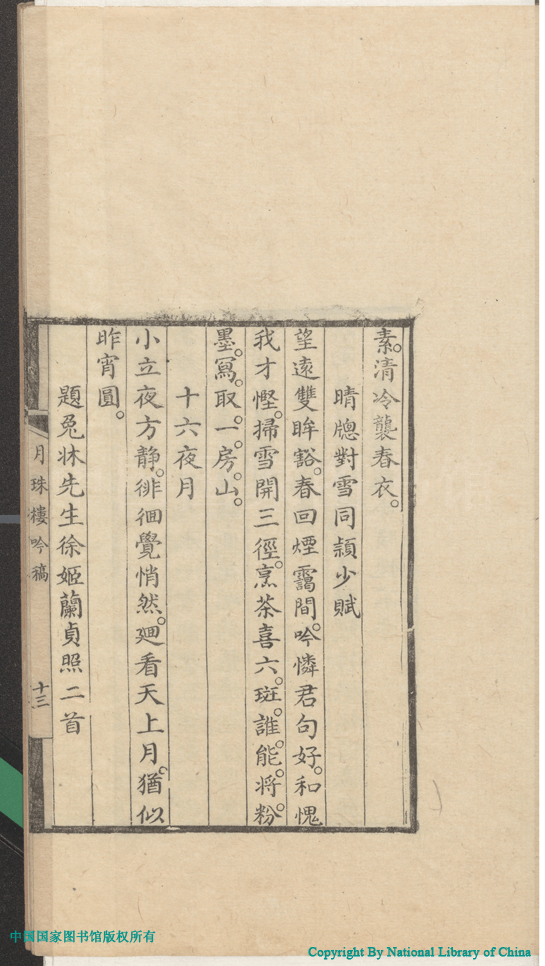 素。清冷襲春衣。
晴牕對雪同潁少賦
望遠雙眸豁。春回煙靄間。吟憐君句好。和愧
我才慳。掃雪開三徑。烹茶喜六。斑。誰。能。將。粉。
墨。寫。取。一。房。山。
十六夜月
小立夜方靜。徘徊覺悄然。廻看天上月。猶似
昨宵圓。
題兔牀先生徐姬蘭貞照二首
月珠樓吟稿
十三
中国国家图书馆版权所有
Copyright By National Library of China